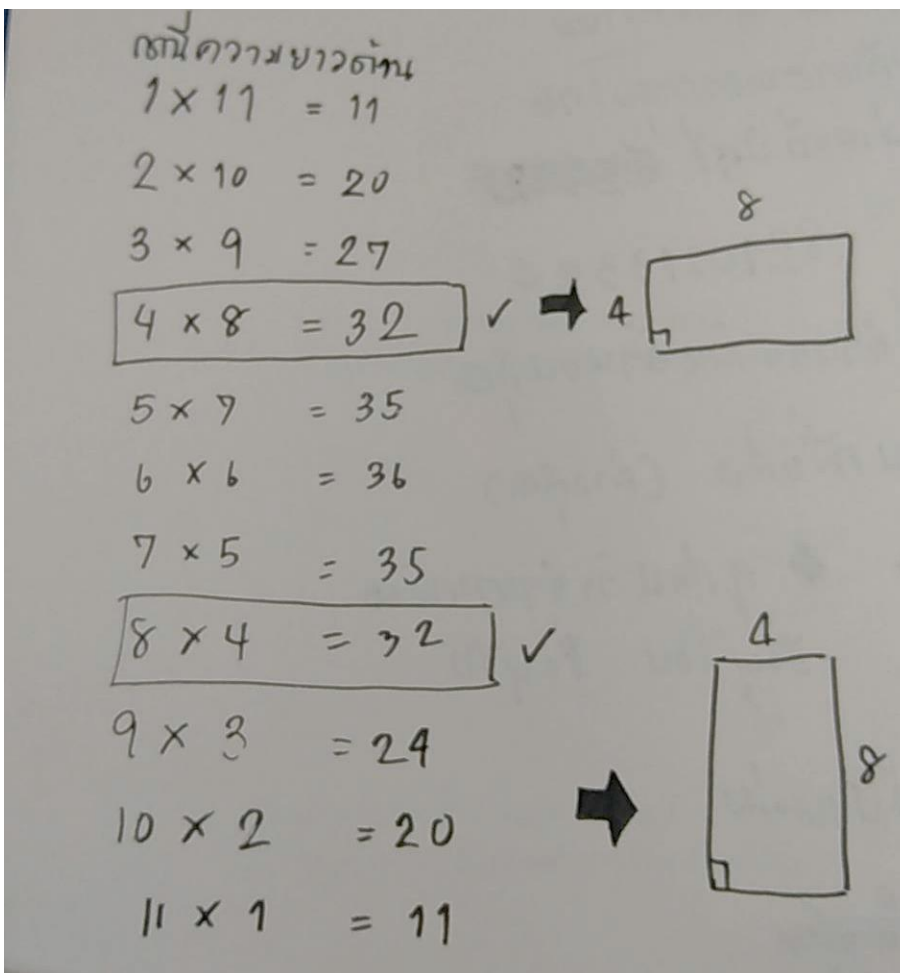 กรณีความยาวด้าน
1 × 11 = 11
2 × 10 = 20
3 × 9 = 27
4 × 8 = 32 ✓ ➡ 4 8
5 × 7 = 35
6 × 6 = 36
7 × 5 = 35
8 × 4 = 32 ✓
4
9 × 3 = 24
8
10 × 2 = 20 ➡
11 × 1 = 11